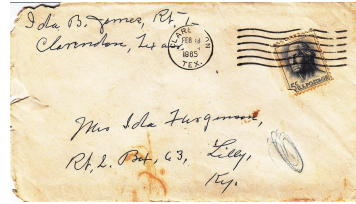 Ida B. James, Rt. 1
Clarendon, Texas
CLARENDON
FEB 18
1965
TEX.
5¢
Mrs Ida Furguson,
Rt, 2. Box, 63, Lilly,
Ky.